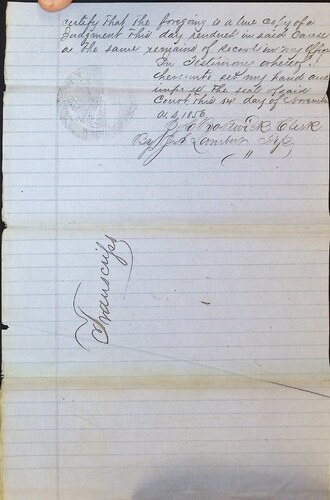 certify that the foregoing is a true copy of a
Judgment this day rendered in said Cause
as the same remains of Record in my office
In Testimony whereof I
hereunto set my hand and
impress the seal of said
Court this day of November
A.D. 1856
Bostwick Clerk
By Lambert
Transcript